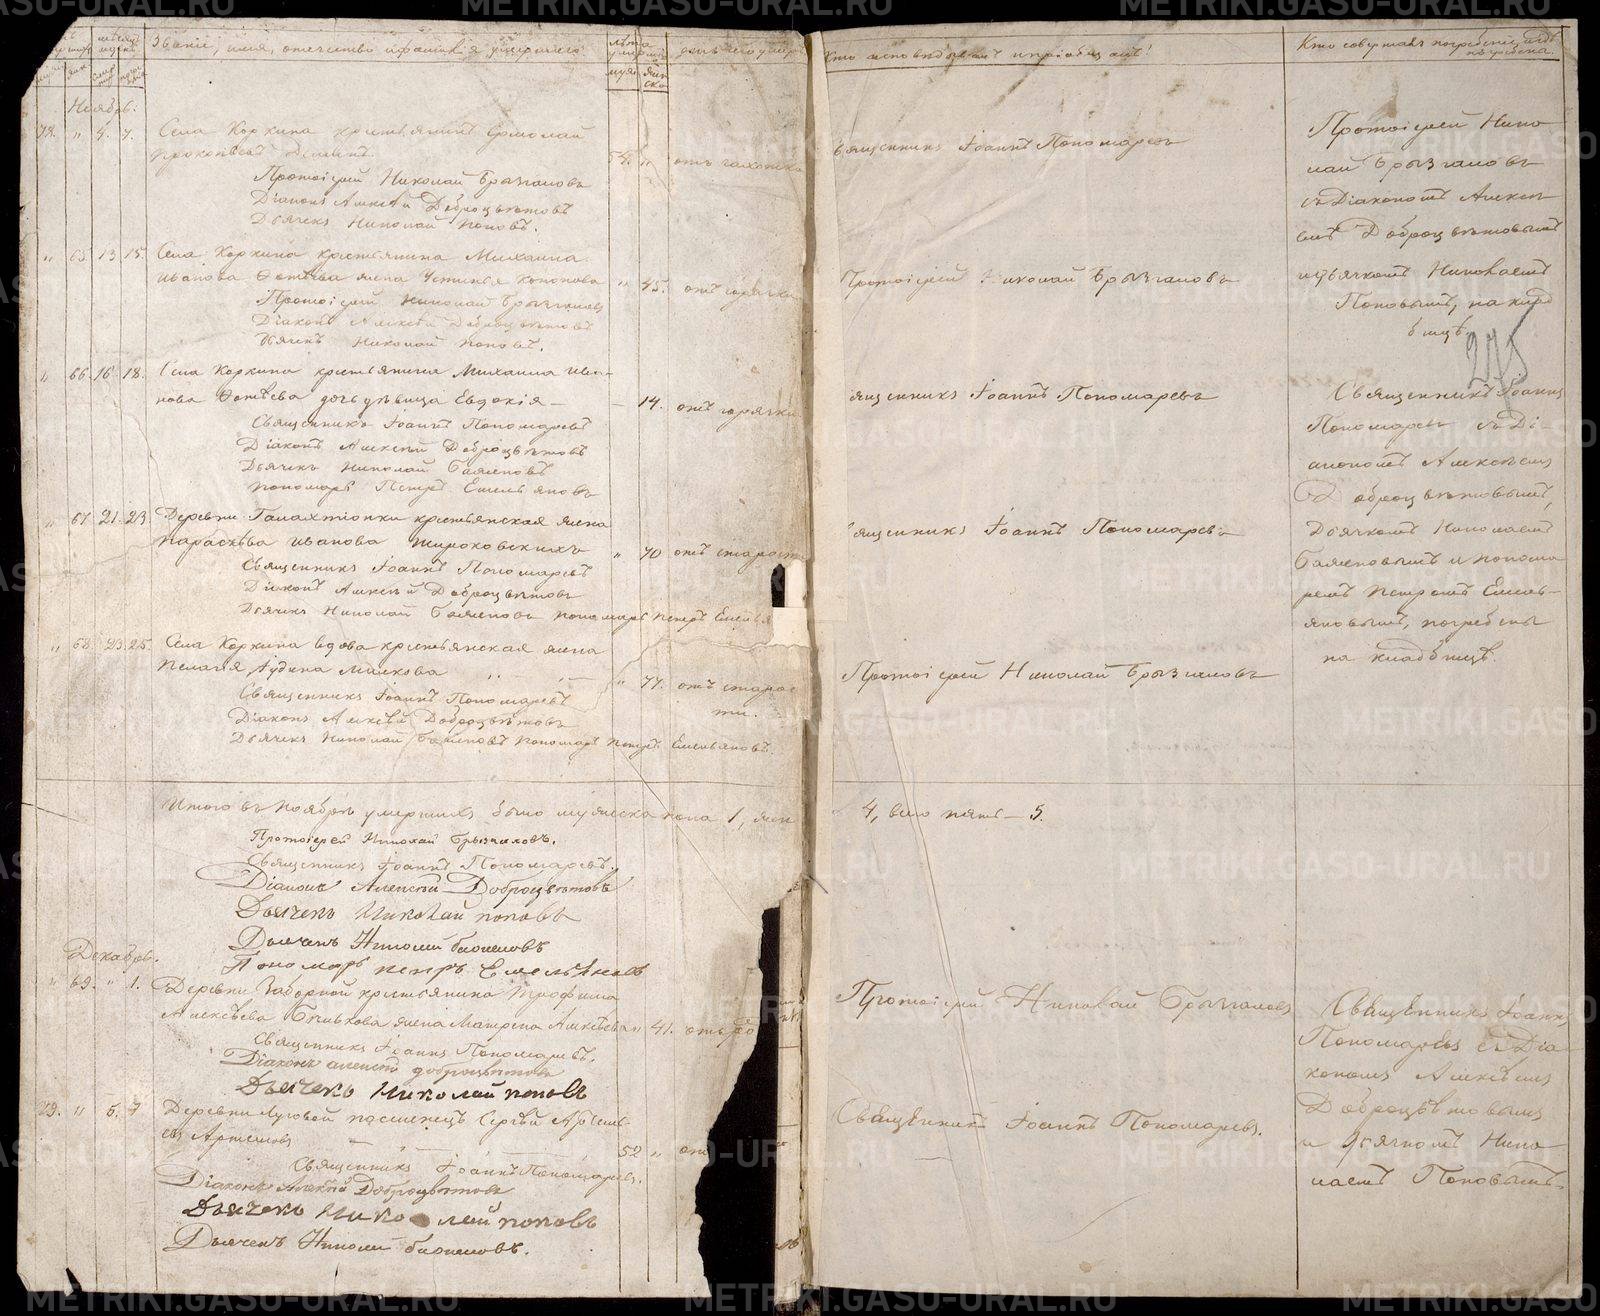 Званіе, имя, отечество и фамилія умершаго
Кто исповѣдывалъ и пріобщалъ
Кто совершалъ погребеніе
Ноябрь.
4. 7. Села Коркина крестьянинъ Ермолай
54. отъ чахотки
Протоіерей Николай Брызгаловъ
Діаконъ Алексѣй Доброцвѣтовъ
Дьячекъ Николай Поповъ.
священникъ Іоаннъ Пономаревъ
Протоіерей Нико-
лай Брызгаловъ
съ Діакономъ Алексѣ-
емъ Доброцвѣтовымъ
и дьячкомъ Николаемъ
Поповымъ, на клад-
бищѣ.
65. 13. 15. Села Коркина крестьянина Михаила
Иванова Фотѣева жена Устинья Кононова 45. отъ горячки
Протоіерей Николай Брызгаловъ
Діаконъ Алексѣй Доброцвѣтовъ
Дьячекъ Николай Поповъ.
Протоіерей Николай Брызгаловъ
275
66. 16. 18. Села Коркина крестьянина Михаила Ива-
нова Фотѣева дочь дѣвица Евдокія — 14. отъ горячки
Священникъ Іоаннъ Пономаревъ
Діаконъ Алексѣй Доброцвѣтовъ
Дьячекъ Николай Баженовъ
Пономарь Петръ Емельяновъ
священникъ Іоаннъ Пономаревъ
Священникъ Іоаннъ
Пономаревъ съ Ді-
акономъ Алексѣемъ
Доброцвѣтовымъ,
Дьячкомъ Николаемъ
Баженовымъ и понома-
ремъ Петромъ Емель-
яновымъ, погребены
на кладбищѣ.
67. 21. 23. Деревни крестьянская жена
Параскева Иванова Широковскихъ " 70 отъ старости
Священникъ Іоаннъ Пономаревъ
Діаконъ Алексѣй Доброцвѣтовъ
Дьячекъ Николай Баженовъ Пономарь Петръ Емелья
священникъ Іоаннъ Пономаревъ
68. 23. 25. Села Коркина вдова крестьянская жена
Пелагея " 77. отъ старос-
ти.
Священникъ Іоаннъ Пономаревъ
Діаконъ Алексѣй Доброцвѣтовъ
Дьячекъ Николай Баженовъ Пономарь Петръ Емельяновъ.
Протоіерей Николай Брызгаловъ
Итого въ Ноябрѣ умершихъ было мужеска пола 1, жен
4, всего пять — 5.
Протоіерей Николай Брызгаловъ.
Священникъ Іоаннъ Пономаревъ.
Діаконъ Алексѣй Доброцвѣтовъ
Дьячекъ Николай Поповъ
Дьячекъ Николай Баженовъ
Пономарь Петръ Емельяновъ
Декабрь.
69. " 1. Деревни Заборной крестьянина Трофима
Алексѣева жена Матрена Алексѣева " 41. отъ
Священникъ Іоаннъ Пономаревъ.
Діаконъ Алексѣй Доброцвѣтовъ
Дьячекъ Николай Поповъ
Протоіерей Николай Брызгаловъ
Священникъ Іоаннъ
Пономаревъ съ Діа-
кономъ Алексѣемъ
Доброцвѣтовымъ
и дьячкомъ Нико-
лаемъ Поповымъ.
" 5. 7 Деревни Луговой поселенецъ Сергѣй Артемь-
евъ Артемовъ 52 " отъ
Священникъ Іоаннъ Пономаревъ.
Діаконъ Алексѣй Доброцвѣтовъ
Дьячекъ Николай Поповъ
Дьячекъ Николай Баженовъ.
Священникъ Іоаннъ Пономаревъ.
METRIKI.GASO-URAL.RU